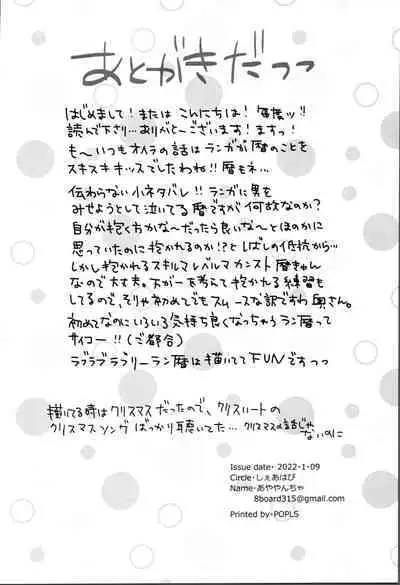 あとがきだっっ
はじめまして！またはこんにちは！毎度ッ!!
読んで下さり…ありがと〜ございます！ますっ！
も〜いつもオメラの話はランガが暦のことを
スキスキキッスでしたわね!!暦もネ…
伝わらない小ネタバレ!!ランガに男を
みせようとして泣いてる暦ですが何故なのか？
自分が抱く方かな〜だったら良いな〜とほのかに
思っていたのに抱かれるのか!?としばしの抵抗から…
しかし抱かれるスキルマレベルマカンスト暦きゅん
なので大丈夫。万が一を考えて抱かれる練習も
してるので、そりゃ初めてでもスムーズな訳ですわ奥さん。
初めてなのにいろいろ気持ち良くなっちゃうラン暦って
サイコー!!（ご都合）
ラブラブラブリーラン暦は描いててFUNですっっ
描いてる時はクリスマスだったので、クリスハートの
クリスマスソングばっかり聴いてた…クリスマスの話じゃ
ないのに
Issue date・2022-1-09
Circle・しぇあはぴ
Name・あややんちゃ
8board315@gmail.com
Printed by・POPLS